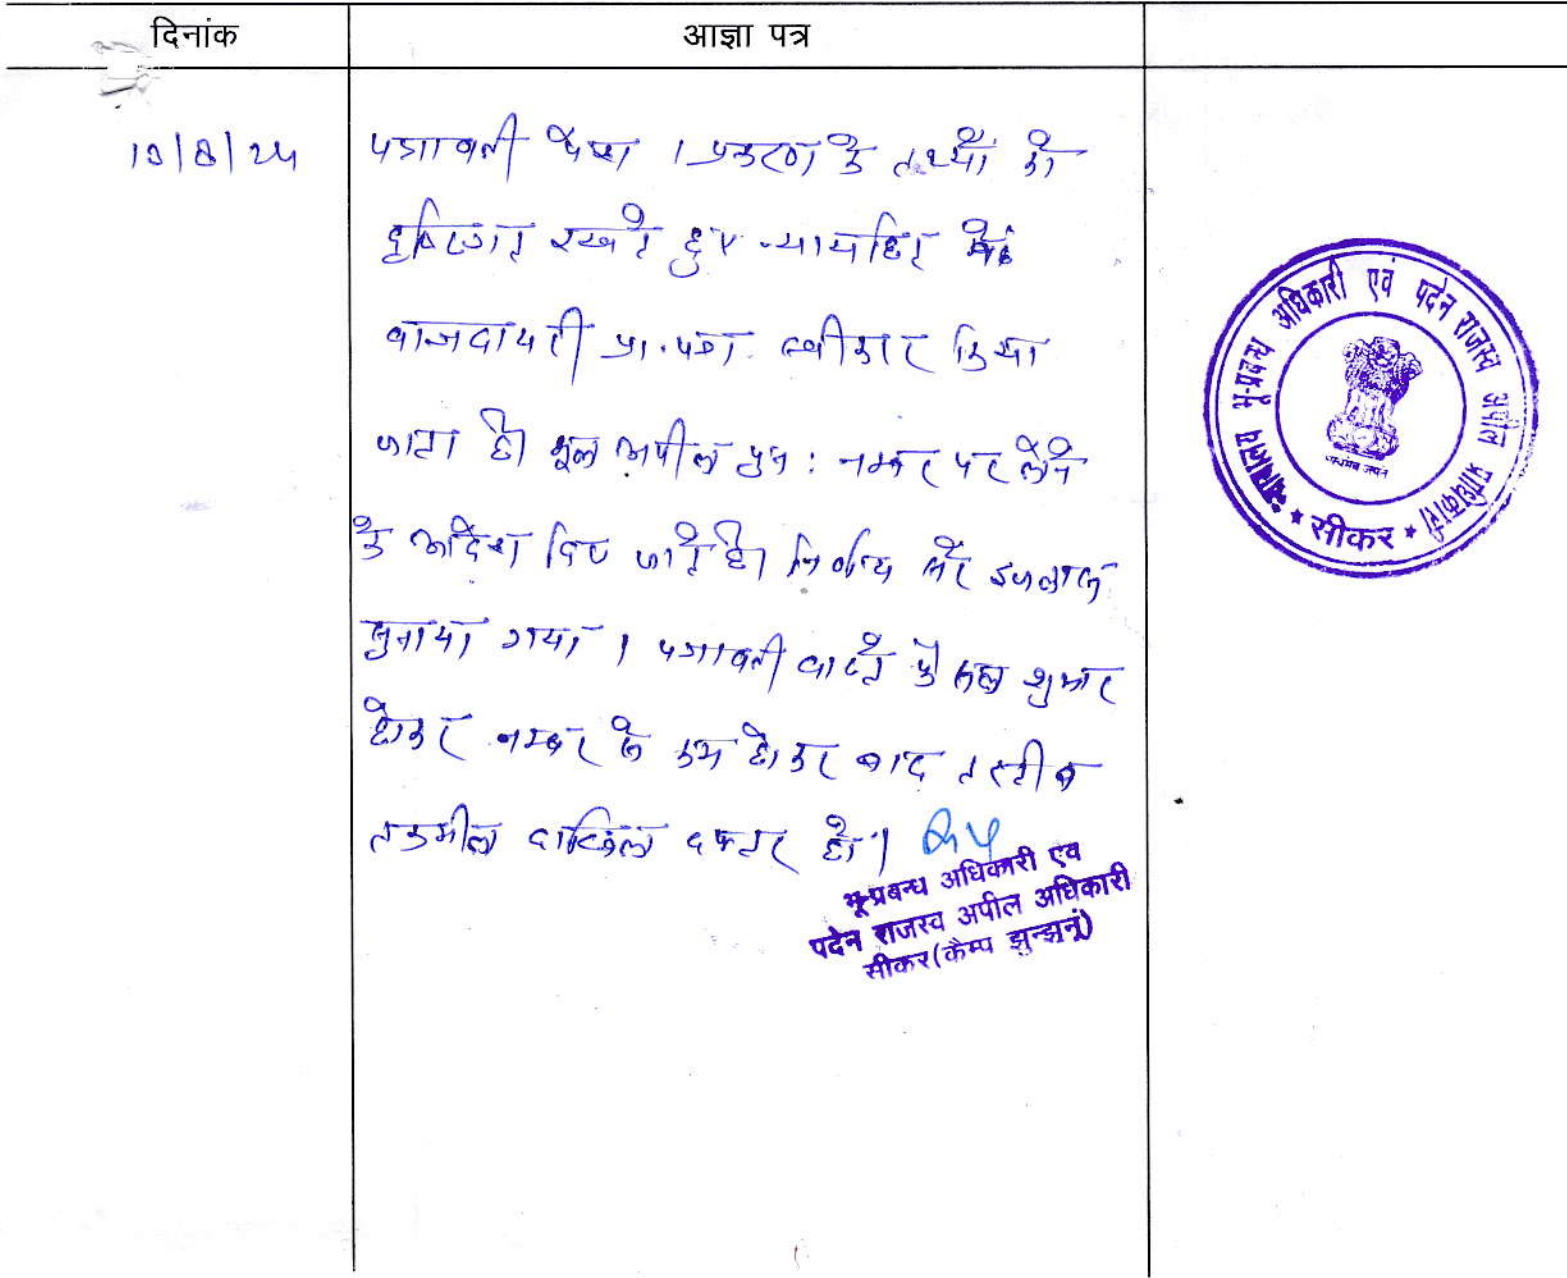 दिनांक आज्ञा पत्र
पत्रावली पेश । प्रकरण के तथ्यों को
दृष्टिगत रखते हुए न्यायहित में
बाजदायरी प्रा.पत्र स्वीकार किया
जाता है। मूल अपील पुनः नम्बर पर लेने
के आदेश दिए जाते है। निर्णय सरे इजलास
सुनाया गया । पत्रावली फैसल शुमार
होकर नम्बर से कम होकर बाद तरतीब
तकमील दाखिल दफ्तर हो।
भू-प्रबन्ध अधिकारी एव
पदेन राजस्व अपील अधिकारी
सीकर(कैम्प झुन्झुनूं)
भू-प्रबन्ध अधिकारी एवं पदेन राजस्व अपील प्राधिकारी
* सीकर *